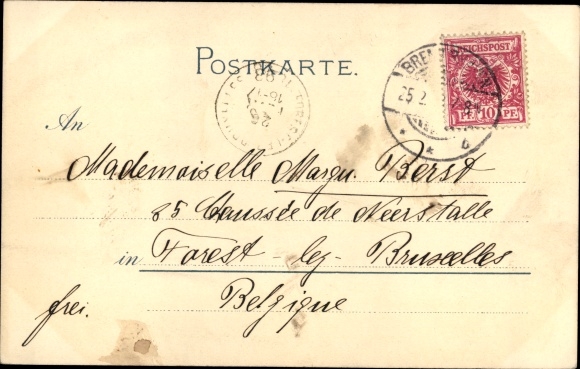 POSTKARTE.
REICHSPOST
PF. 10 PF.
BREM
25 2
An
Mademoiselle Margu. Berst
85 Chaussée de Neerstalle
in Forest - lez - Bruxelles
frei. Belgique